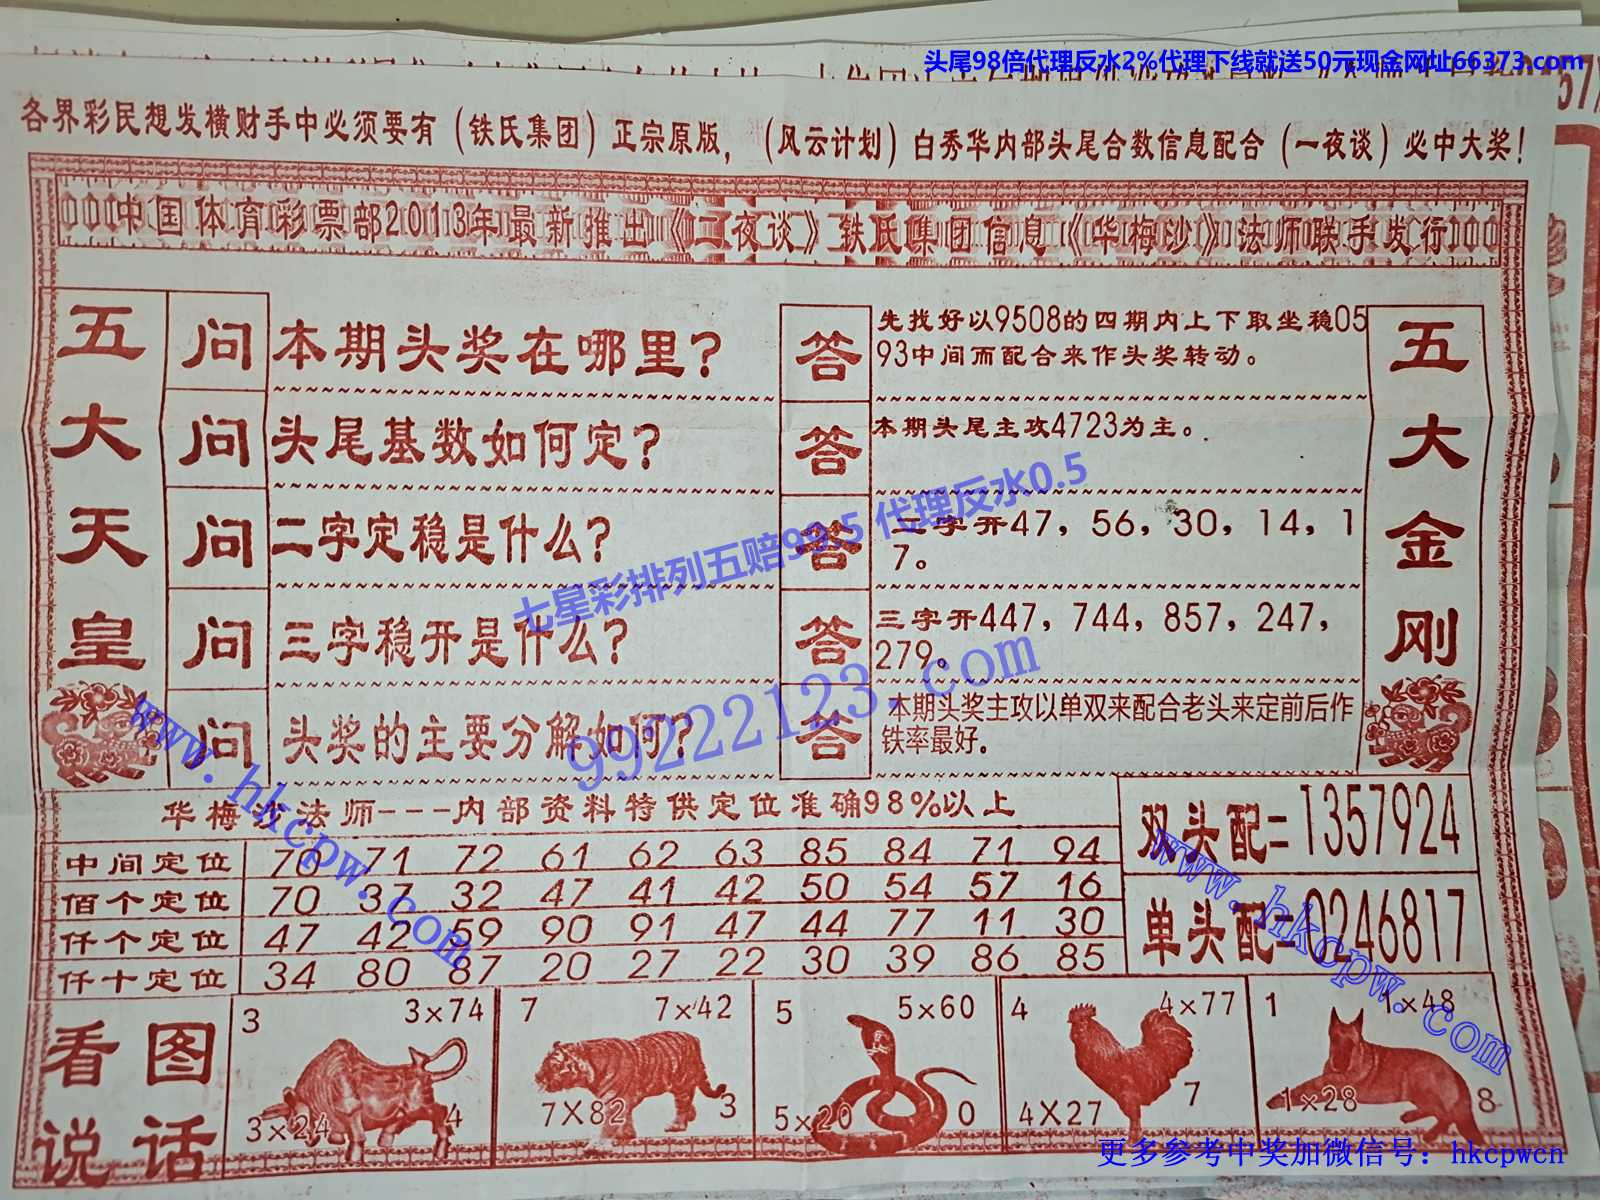 头尾98倍代理反水2%代理下线就送50元现金网址66373.com
各界彩民想发横财手中必须要有(铁氏集团)正宗原版，(风云计划)白秀华内部头尾合数信息配合(一夜谈)必中大奖！
中国体育彩票部2013年最新推出《二夜谈》铁氏集团信息《华梅沙》法师联手发行
五大天皇
问 本期头奖在哪里?
答 先找好以9508的四期内上下取坐稳05
93中间而配合来作头奖转动。
五大金刚
问 头尾基数如何定?
答 本期头尾主攻4723为主。
问 二字定稳是什么?
答 二字开47，56，30，14，1
7。
问 三字稳开是什么?
答 三字开447，744，857，247，
279。
问 头奖的主要分解如何?
答 本期头奖主攻以单双来配合老头来定前后作
铁率最好。
七星彩排列五赔98.5 代理反水0.5
99222123.com
www.hkcpw.com
华梅沙法师---内部资料特供定位准确98%以上
中间定位 70 71 72 61 62 63 85 84 71 94
佰个定位 70 37 32 47 41 42 50 54 57 16
仟个定位 47 42 59 90 91 47 44 77 11 30
仟十定位 34 80 87 20 27 22 30 39 86 85
双头配=1357924
单头配=0246817
www.hkcpw.com
看图
说话
3 3×74
3×24 4
7 7×42
7×82 3
5 5×60
5×20 0
4 4×77
4×27 7
1 1×48
1×28 8
更多参考中奖加微信号：hkcpwcn